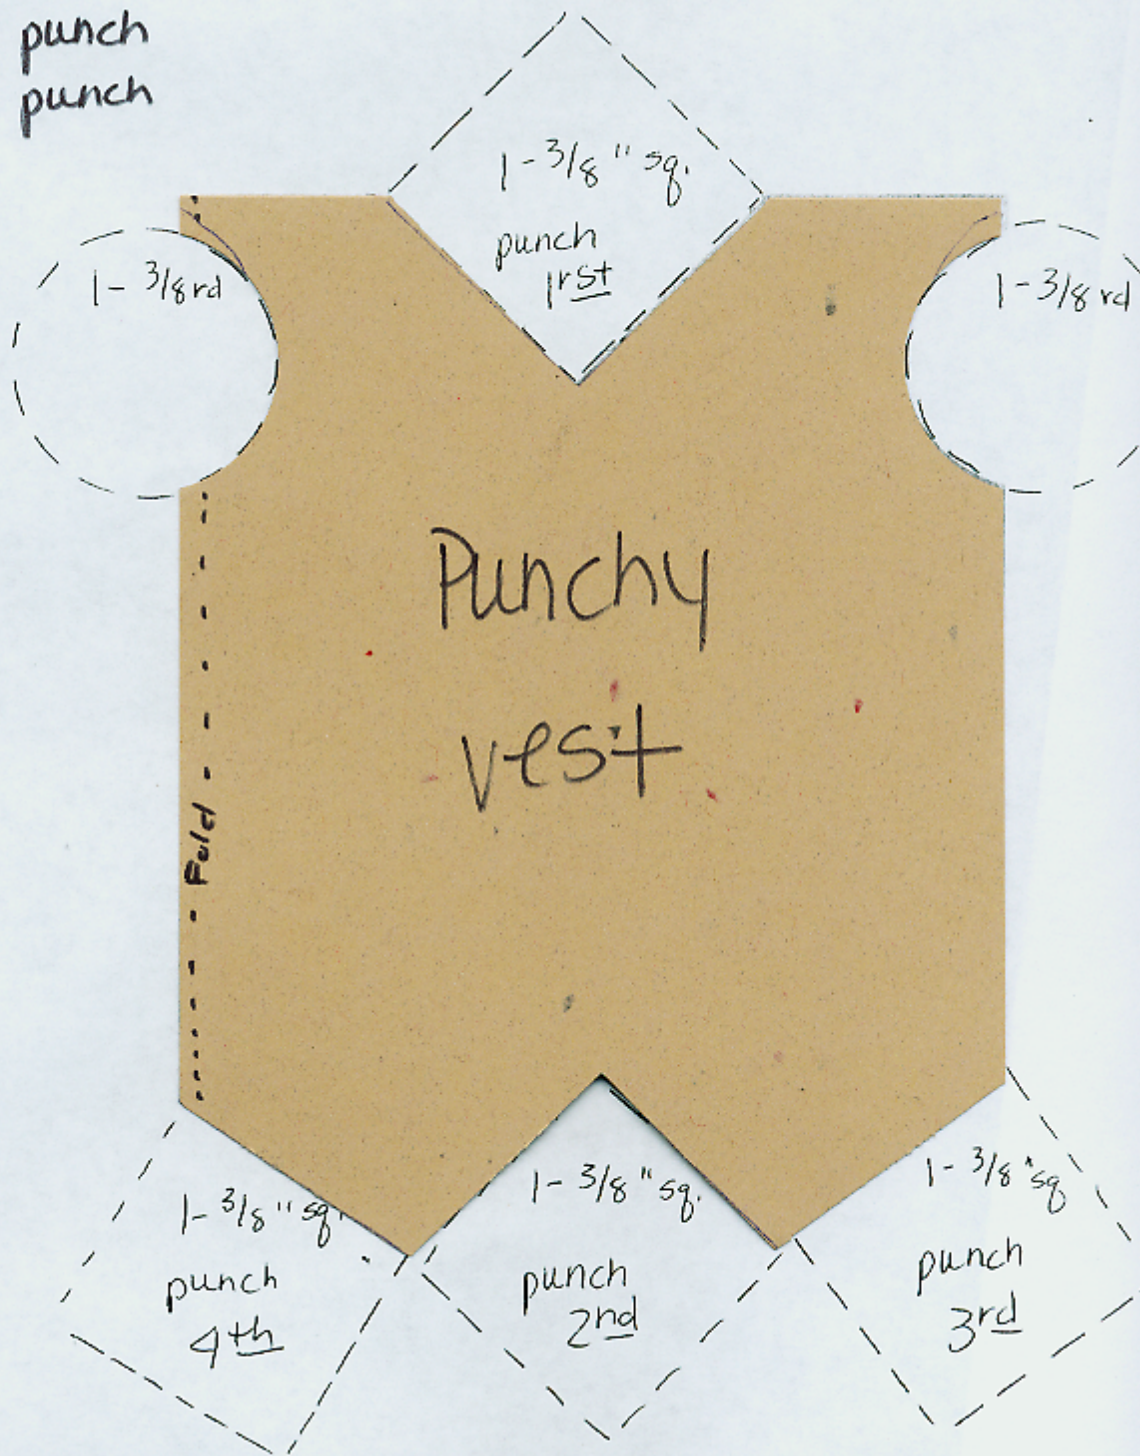 punch
punch
1-3/8" sq.
punch
1rst
1-3/8 rd
1-3/8 rd
Punchy
vest
Fold
1-3/8" sq.
punch
4th
1-3/8" sq.
punch
2nd
1-3/8" sq
punch
3rd